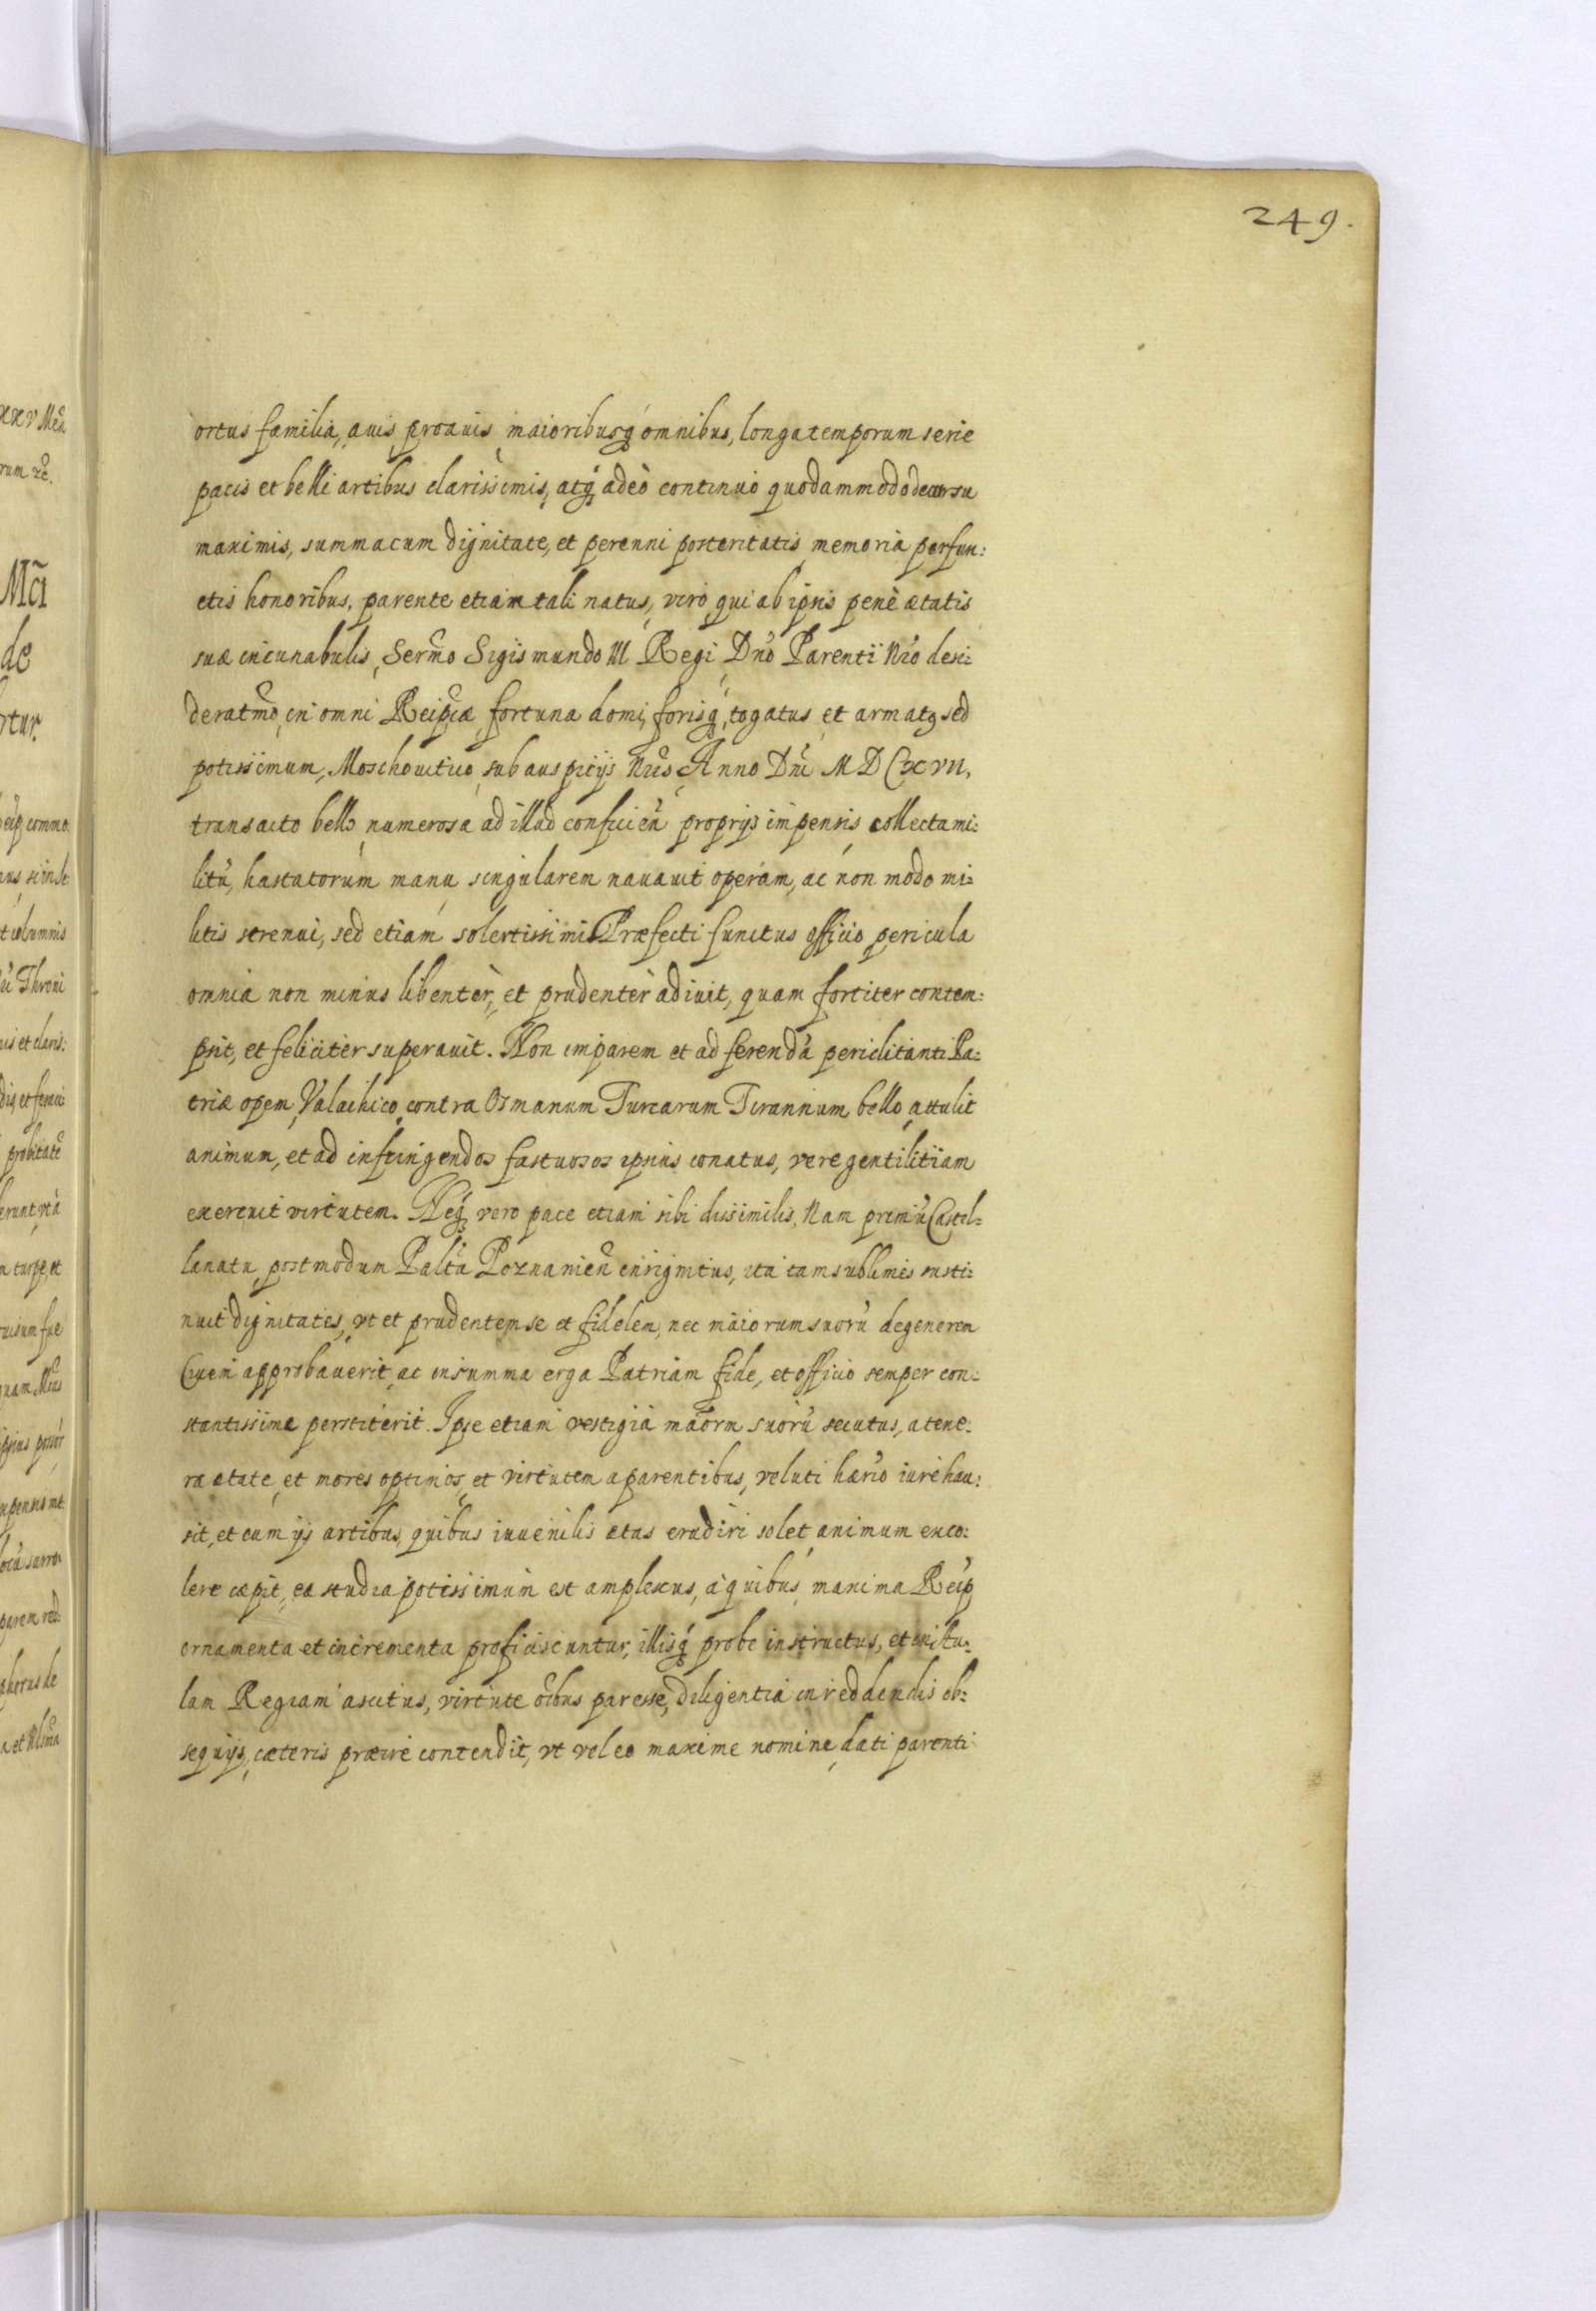 249.
ortus familia, auis, proauis, maioribusq́ omnibus, longa temporum serie
pacis et belli artibus clarissimis, atq́ adeò continuò quodammodo decursu
maximis, summa cum dignitate, et perenni posteritatis memoria perfun:
ctis honoribus, parente etiam tali natus, viro qui ab ipsis penè ætatis
suæ incunabulis, Sermo Sigismundo III Regi, Dno Parenti Nro desi:
deratmo, in omni Reipcæ fortuna domi, forisq́, togatus et armatg sed
potissimum, Moschouitico, sub auspicijs Nris Anno Dni MDCXVII,
transacto bello, numerosa ad illud conficien proprijs impensis, collecta mi:
litũ, hastatorum manu, singularem nauauit operam, ac non modo mi:
litis strenui, sed etiam solertissimi Præfecti functus officio pericula
omnia non minus libentèr, et prudentèr adiuit, quam fortiter contem:
psit, et felicitèr superauit. Non imparem et ad ferendã periclitanti Pa:
triæ opem, Valachico, contra Osmanum Turcarum Tirannum bello, attulit
animum, et ad infringendos fastuosos ipsius conatus, vere gentilitiam
exercuit virtutem. Neq́ vero pace etiam sibi dissimilis, Nam primũ Castel:
lanatu, postmodum Paltũ Poznanien insignitus, ita tam sublimes susti:
nuit dignitates, vt et prudentem se et fidelem, nec maiorum suorũ degenerem
Ciuem approbauerit, ac in summa erga Patriam fide, et officio semper con:
stantissime perstiterit. Ipse etiam vestigia maorum suorũ secutus, a tene:
ra ætate, et mores optimos, et virtutem a parentibus, veluti hærio iure hau:
sit, et cum ijs artibus, quibus iuuenilis ætas erudiri solet, animum exco:
lere cæpit, ea studia potissimum est amplexus, à quibus, maxima Reip
ornamenta et incrementa proficiscuntur, illisq́ probe instructus, et in Au:
lam Regiam ascitus, virtute oibus par esse, diligentia in reddendis ob:
sequijs, cæteris præire contendit, vt vel eo maxime nomine, dati parenti